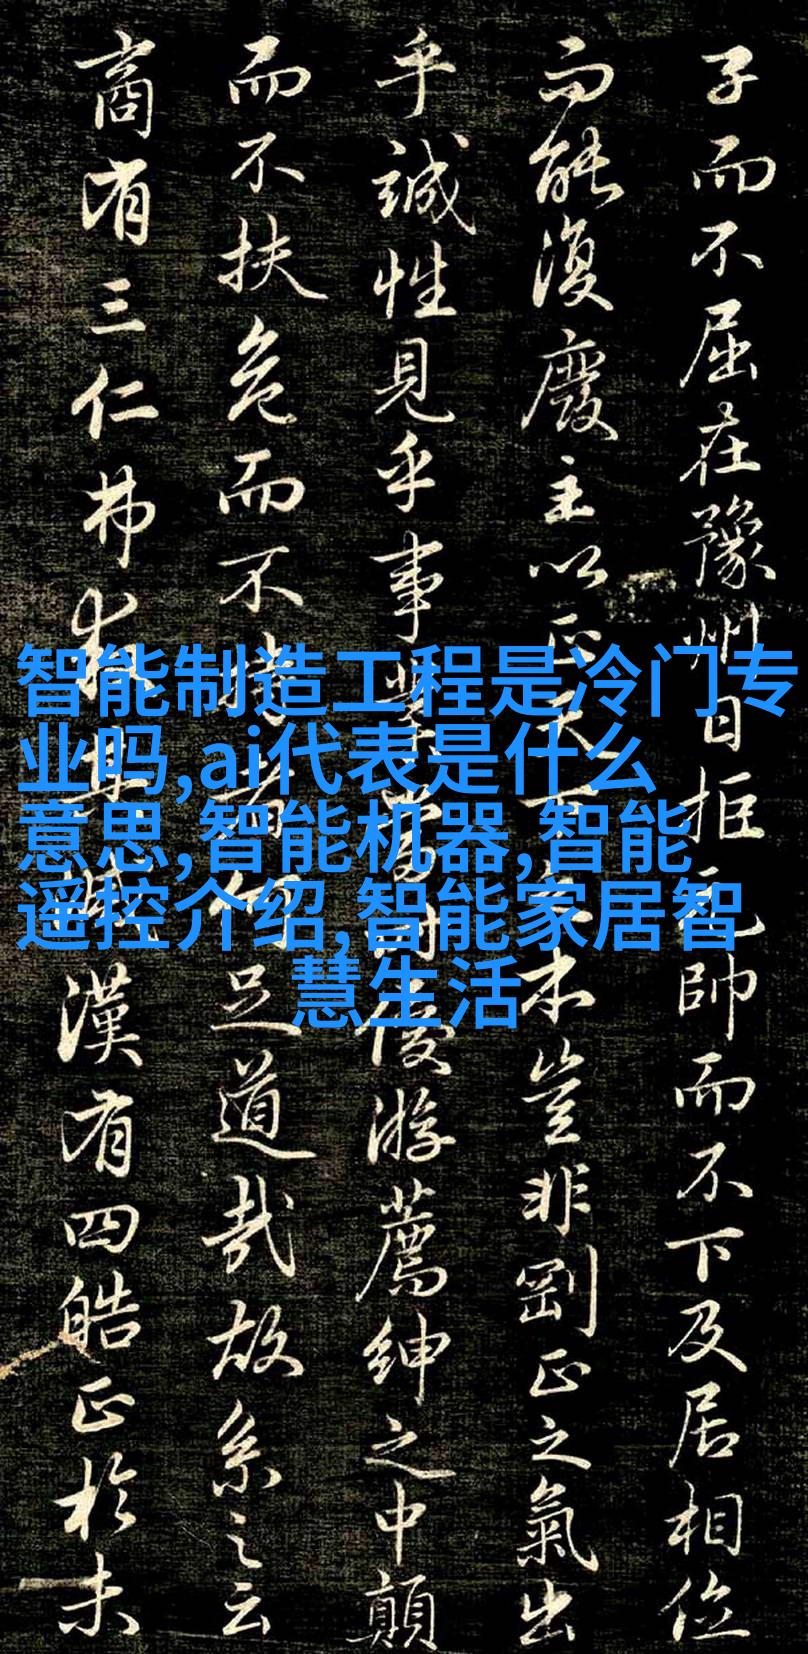 智能制造工程是冷门专
业吗,ai代表是什么
意思,智能机器,智能
遥控介绍,智能家居智
慧生活
子而不屈在豫州日拒元帥而不下及居相位
而能復廢主以正天下之本豈非剛正之氣出
乎誠性見乎事業當時優游薦紳之中顛
而不扶危而不持者何足道哉故系之云
商有三仁弗救其滅漢有四皓正於未